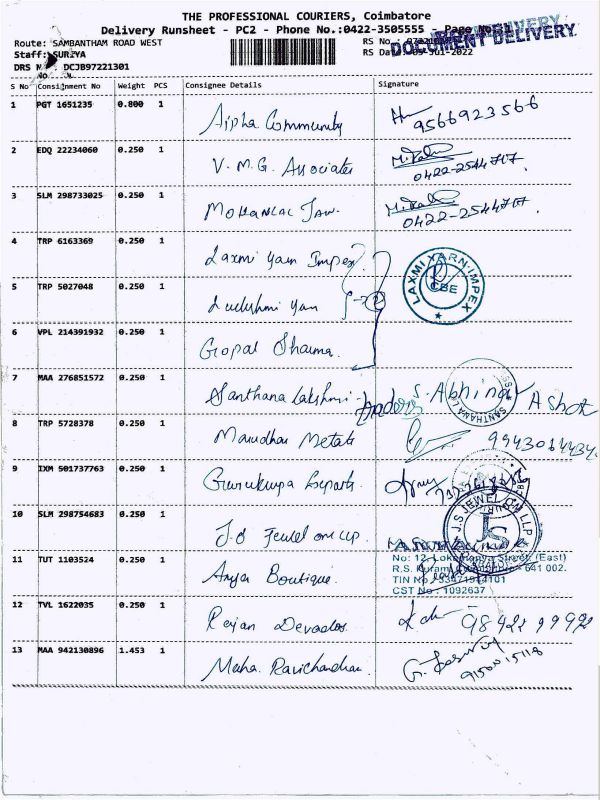 THE PROFESSIONAL COURIERS, Coimbatore
Delivery Runsheet - PC2 - Phone No.:0422-3505555 - Page No.:1
DOCUMENT DELIVERY
Route: SAMBANTHAM ROAD WEST
RS No.:
Staff: SURIYA
RS Date: 09-Jul-2022
DRS No.: DCJB97221301
S No Consignment No Weight PCS Consignee Details Signature
1 PGT 1651235 0.800 1 Alpha Community 9566923566
2 EDQ 22234060 0.250 1 V.M.G. Associates 0422-2544717
3 SLM 298733025 0.250 1 Mohanlal Jaw.
4 TRP 6163369 0.250 1 Laxmi Yarn Impex
LAXMI YARN IMPEX
CBE
5 TRP 5027048 0.250 1 Yarn
6 VPL 214391932 0.250 1 Gopal Sharma.
7 MAA 276851572 0.250 1 Santhana Lakshmi Traders S. Abhinav Ashok
8 TRP 5728378 0.250 1 Marudhar Metals
9 IXM 501737763 0.250 1 Gurukrupa Exports
10 SLM 298754683 0.250 1 J.S Jewel one LLP
JS
11 TUT 1103524 0.250 1 Arya Boutique.
R.S. Puram, Coimbatore - 641 002.
CST No : 1092637
12 TVL 1622035 0.250 1 Rajan Devados.
13 MAA 942130896 1.453 1 Maha. Ravichandran. G.